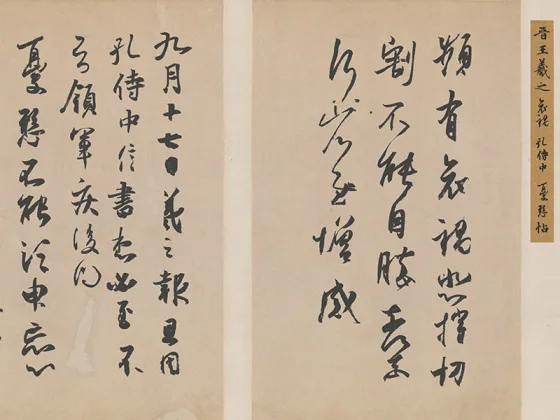 晉王羲之哀禍 孔侍中 憂懸帖
頻有哀禍悲摧切
割不能自勝奈何奈
何省慰增感
九月十七日羲之報且因
孔侍中信書想必至不
知領軍疾後問
憂懸不能須臾忘心